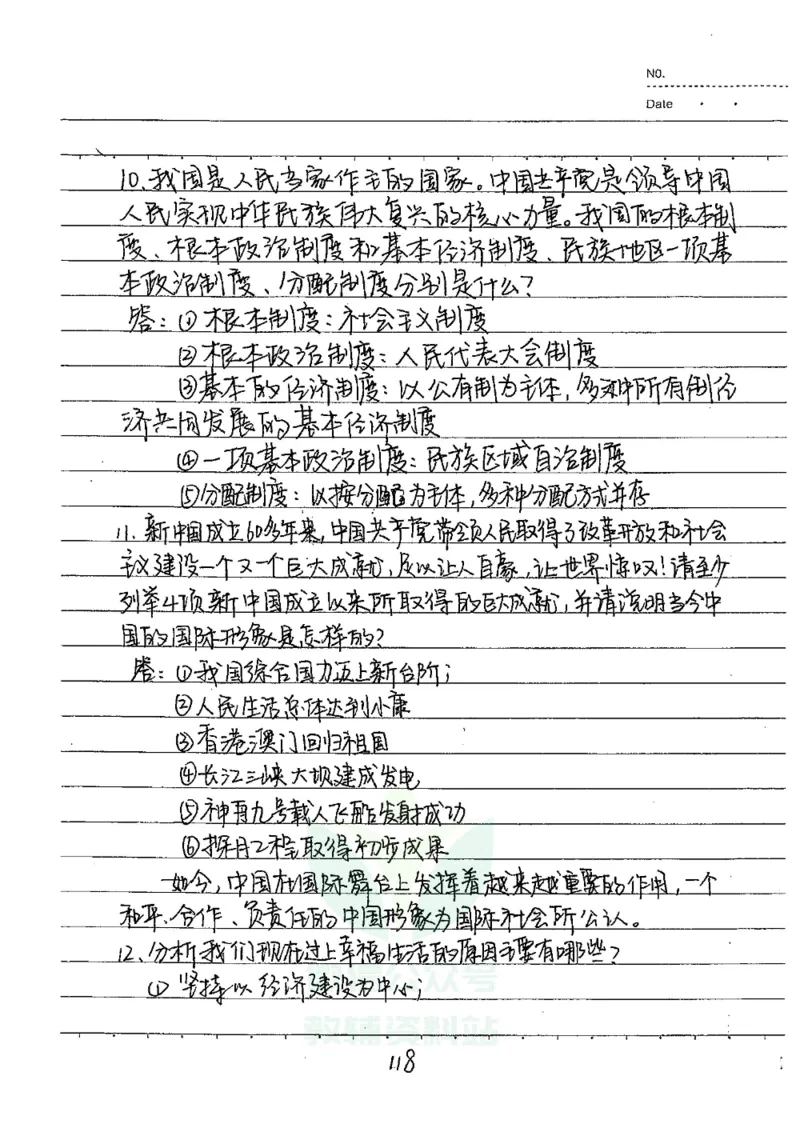 NO.
Date
10、我国是人民当家作主的国家。中国共产党是领导中国
人民实现中华民族伟大复兴的核心力量。我国的根本制
度、根本政治制度和基本经济制度、民族地区一项基
本政治制度、分配制度分别是什么?
答:①根本制度:社会主义制度
②根本政治制度:人民代表大会制度
③基本的经济制度:以公有制为主体,多种所有制经
济共同发展的基本经济制度
④一项基本政治制度:民族区域自治制度
⑤分配制度:以按分配为主体,多种分配方式并存
11、新中国成立60多年来,中国共产党带领人民取得了改革开放和社会
主义建设一个又一个巨大成就,足以让人自豪,让世界惊叹!请至少
列举4项新中国成立以来所取得的巨大成就,并请说明当今中
国的国际形象是怎样的?
答:①我国综合国力迈上新台阶;
②人民生活总体达到小康
③香港澳门回归祖国
④长江三峡大坝建成发电
⑤神舟九号载人飞船发射成功
⑥探月工程取得初步成果
如今,中国在国际舞台上发挥着越来越重要的作用,一个
和平、合作、负责任的中国形象为国际社会所公认。
12、分析我们现在过上幸福生活的原因主要有哪些?
(1)坚持以经济建设为中心;
教辅资料站
118